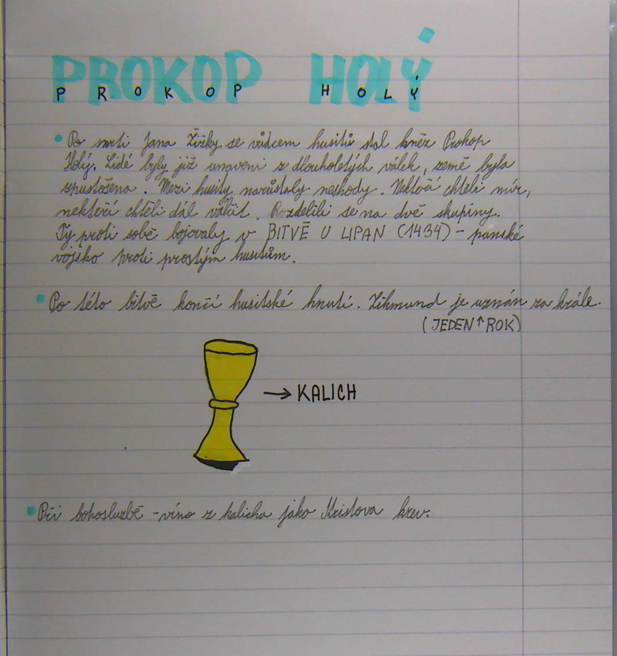 PROKOP HOLÝ
PROKOP HOLÝ
• Po smrti Jana Žižky se vůdcem husitů stal kněz Prokop
Holý. Lidé byly již unaveni z dlouholetých válek, země byla
zpustošena. Mezi husity narůstaly neshody. Někteří chtěli mír,
někteří chtěli dál válčit. Rozdělili se na dvě skupiny.
Ty proti sobě bojovaly v BITVĚ U LIPAN (1434) - panské
vojsko proti prostým husitům.
• Po této bitvě končí husitské hnutí. Zikmund je uznán za krále.
(JEDEN ↑ ROK)
→ KALICH
• Při bohoslužbě - víno z kalicha jako Kristova krev.